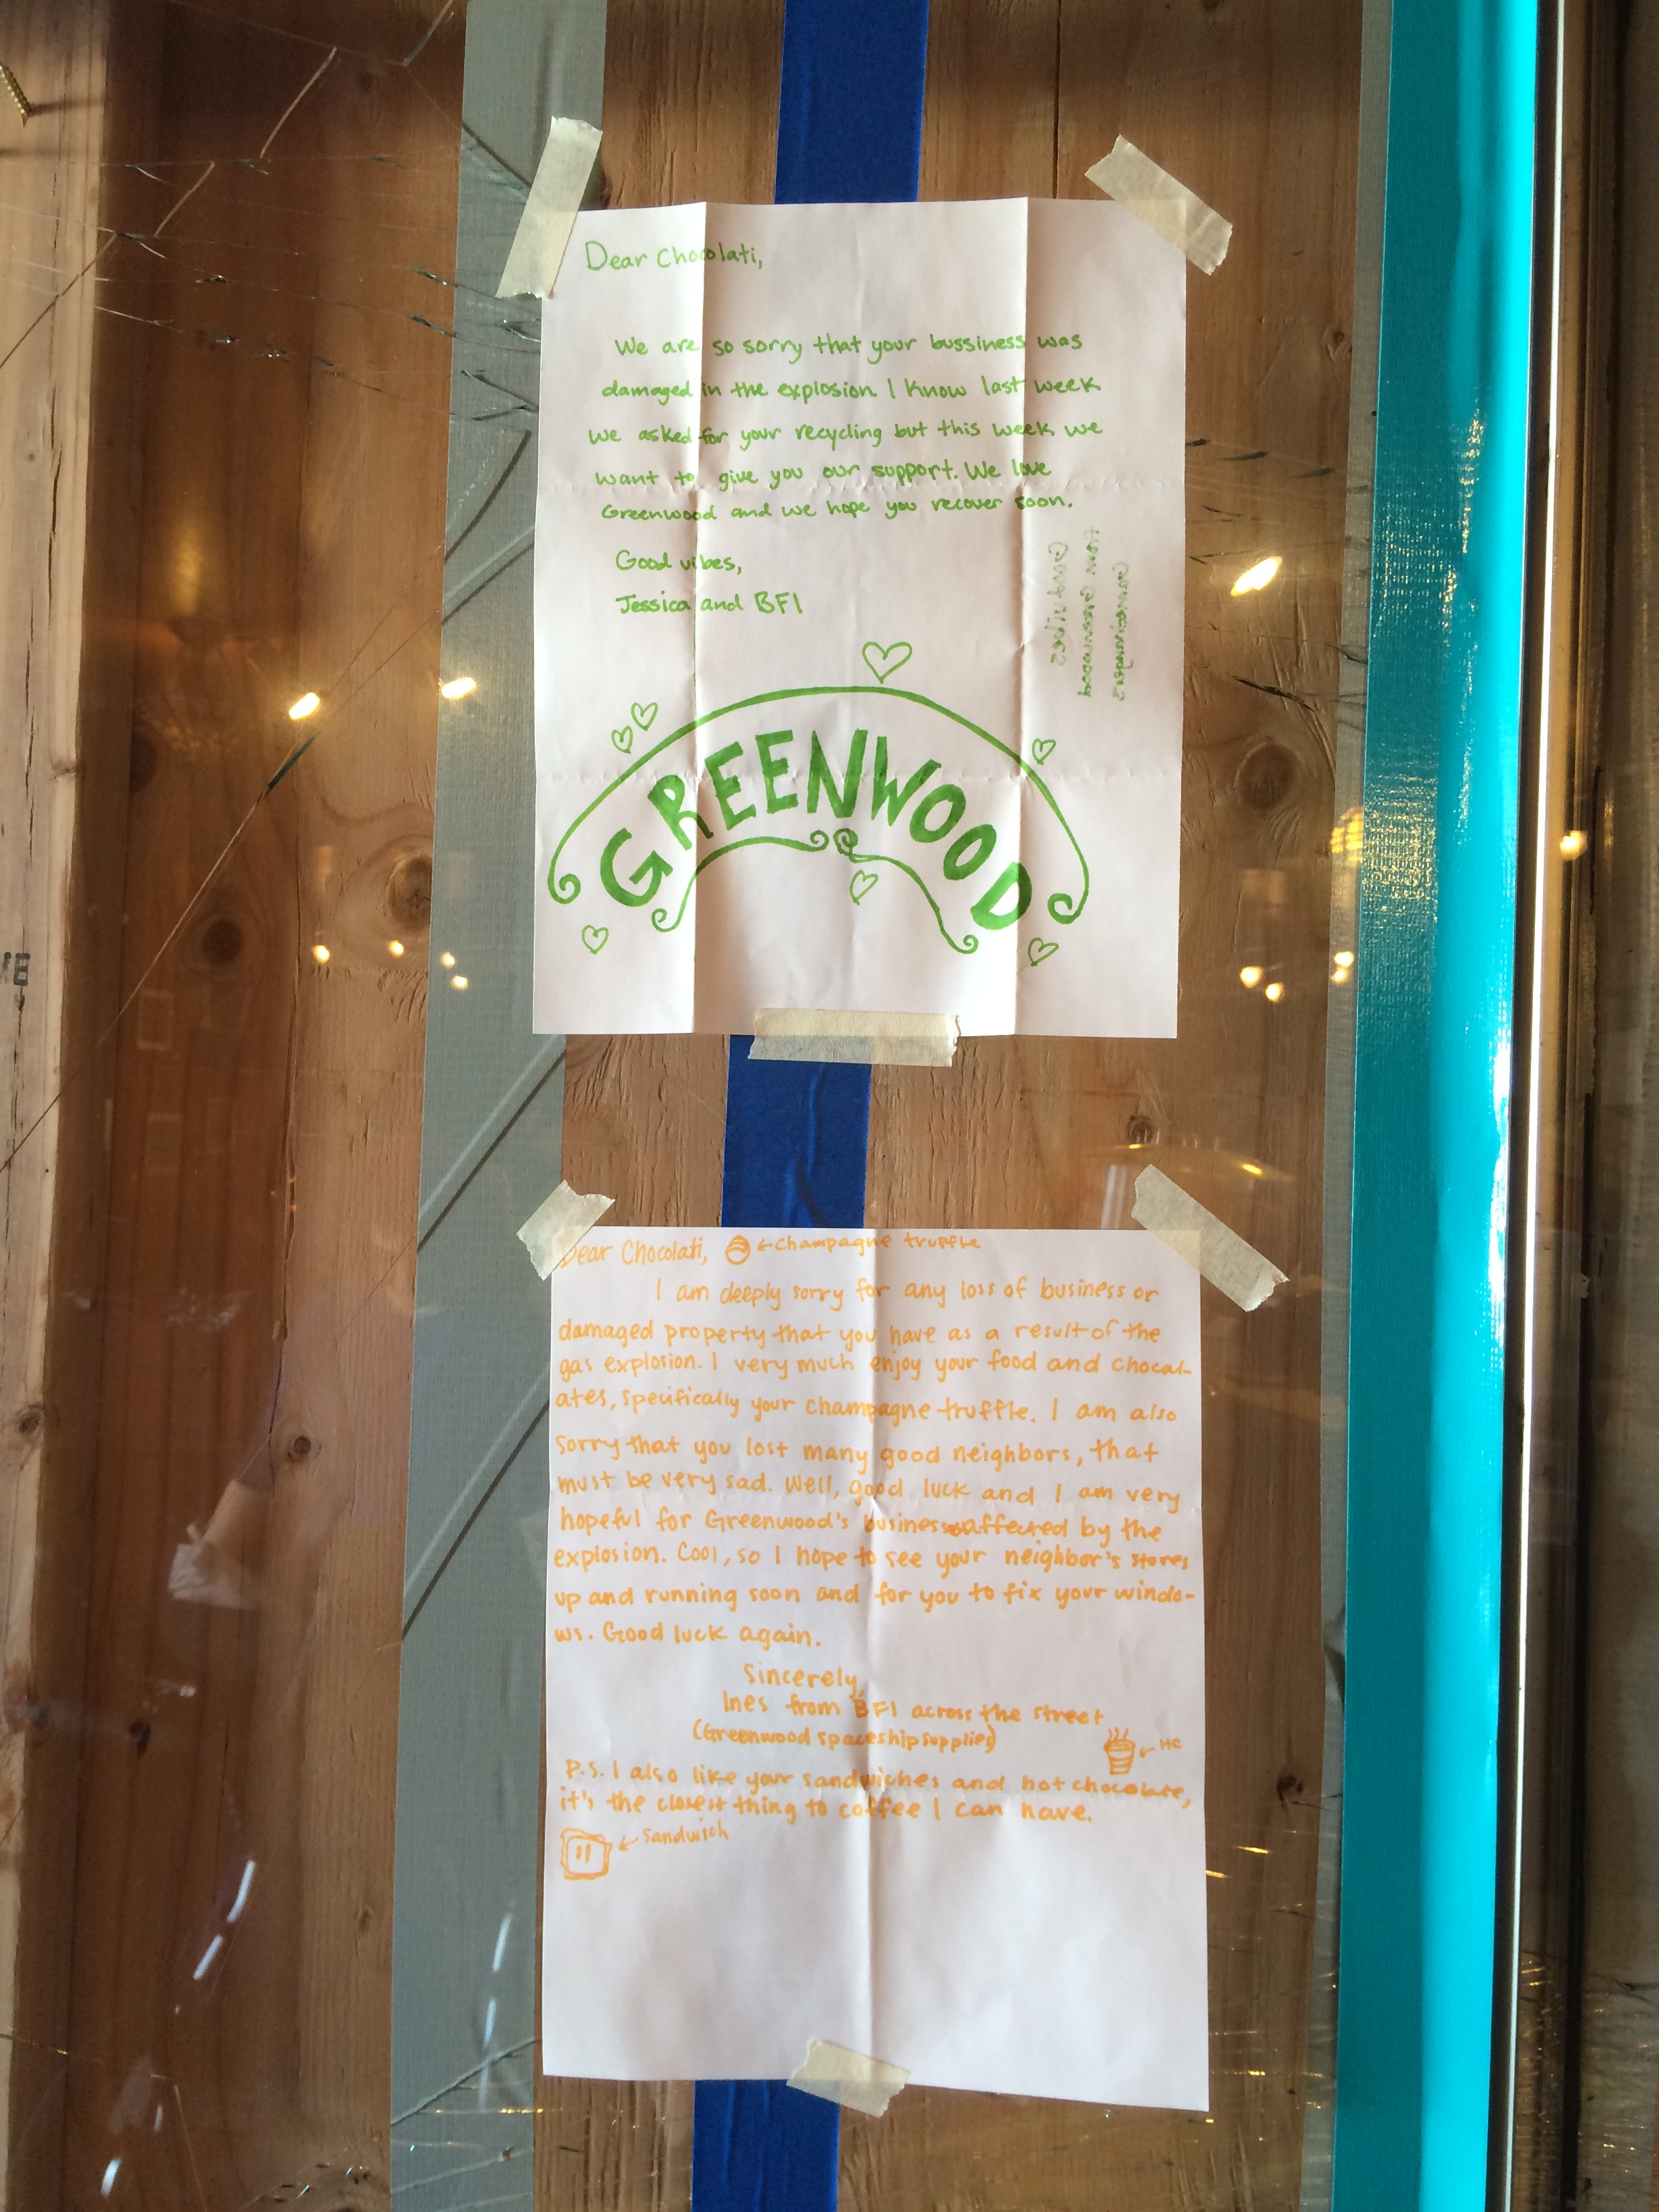 Dear Chocolati,
We are so sorry that your bussiness was
damaged in the explosion. I know last week
we asked for your recycling but this week we
want to give you our support. We love
Greenwood and we hope you recover soon.
Good vibes,
Jessica and BFI
Good vibes
from Greenwood
GREENWOOD
Dear Chocolati,
←champagne truffle
I am deeply sorry for any loss of business or
damaged property that you have as a result of the
gas explosion. I very much enjoy your food and chocal-
ates, specifically your champagne truffle. I am also
sorry that you lost many good neighbors, that
must be very sad. Well, good luck and I am very
hopeful for Greenwood's business affected by the
explosion. Cool, so I hope to see your neighbor's stores
up and running soon and for you to fix your windo-
ws. Good luck again.
Sincerely,
Ines from BFI across the street
(Greenwood spaceship supplies)
← HC
P.S. I also like your sandwiches and hot chocolate,
it's the closest thing to coffee I can have.
← sandwich